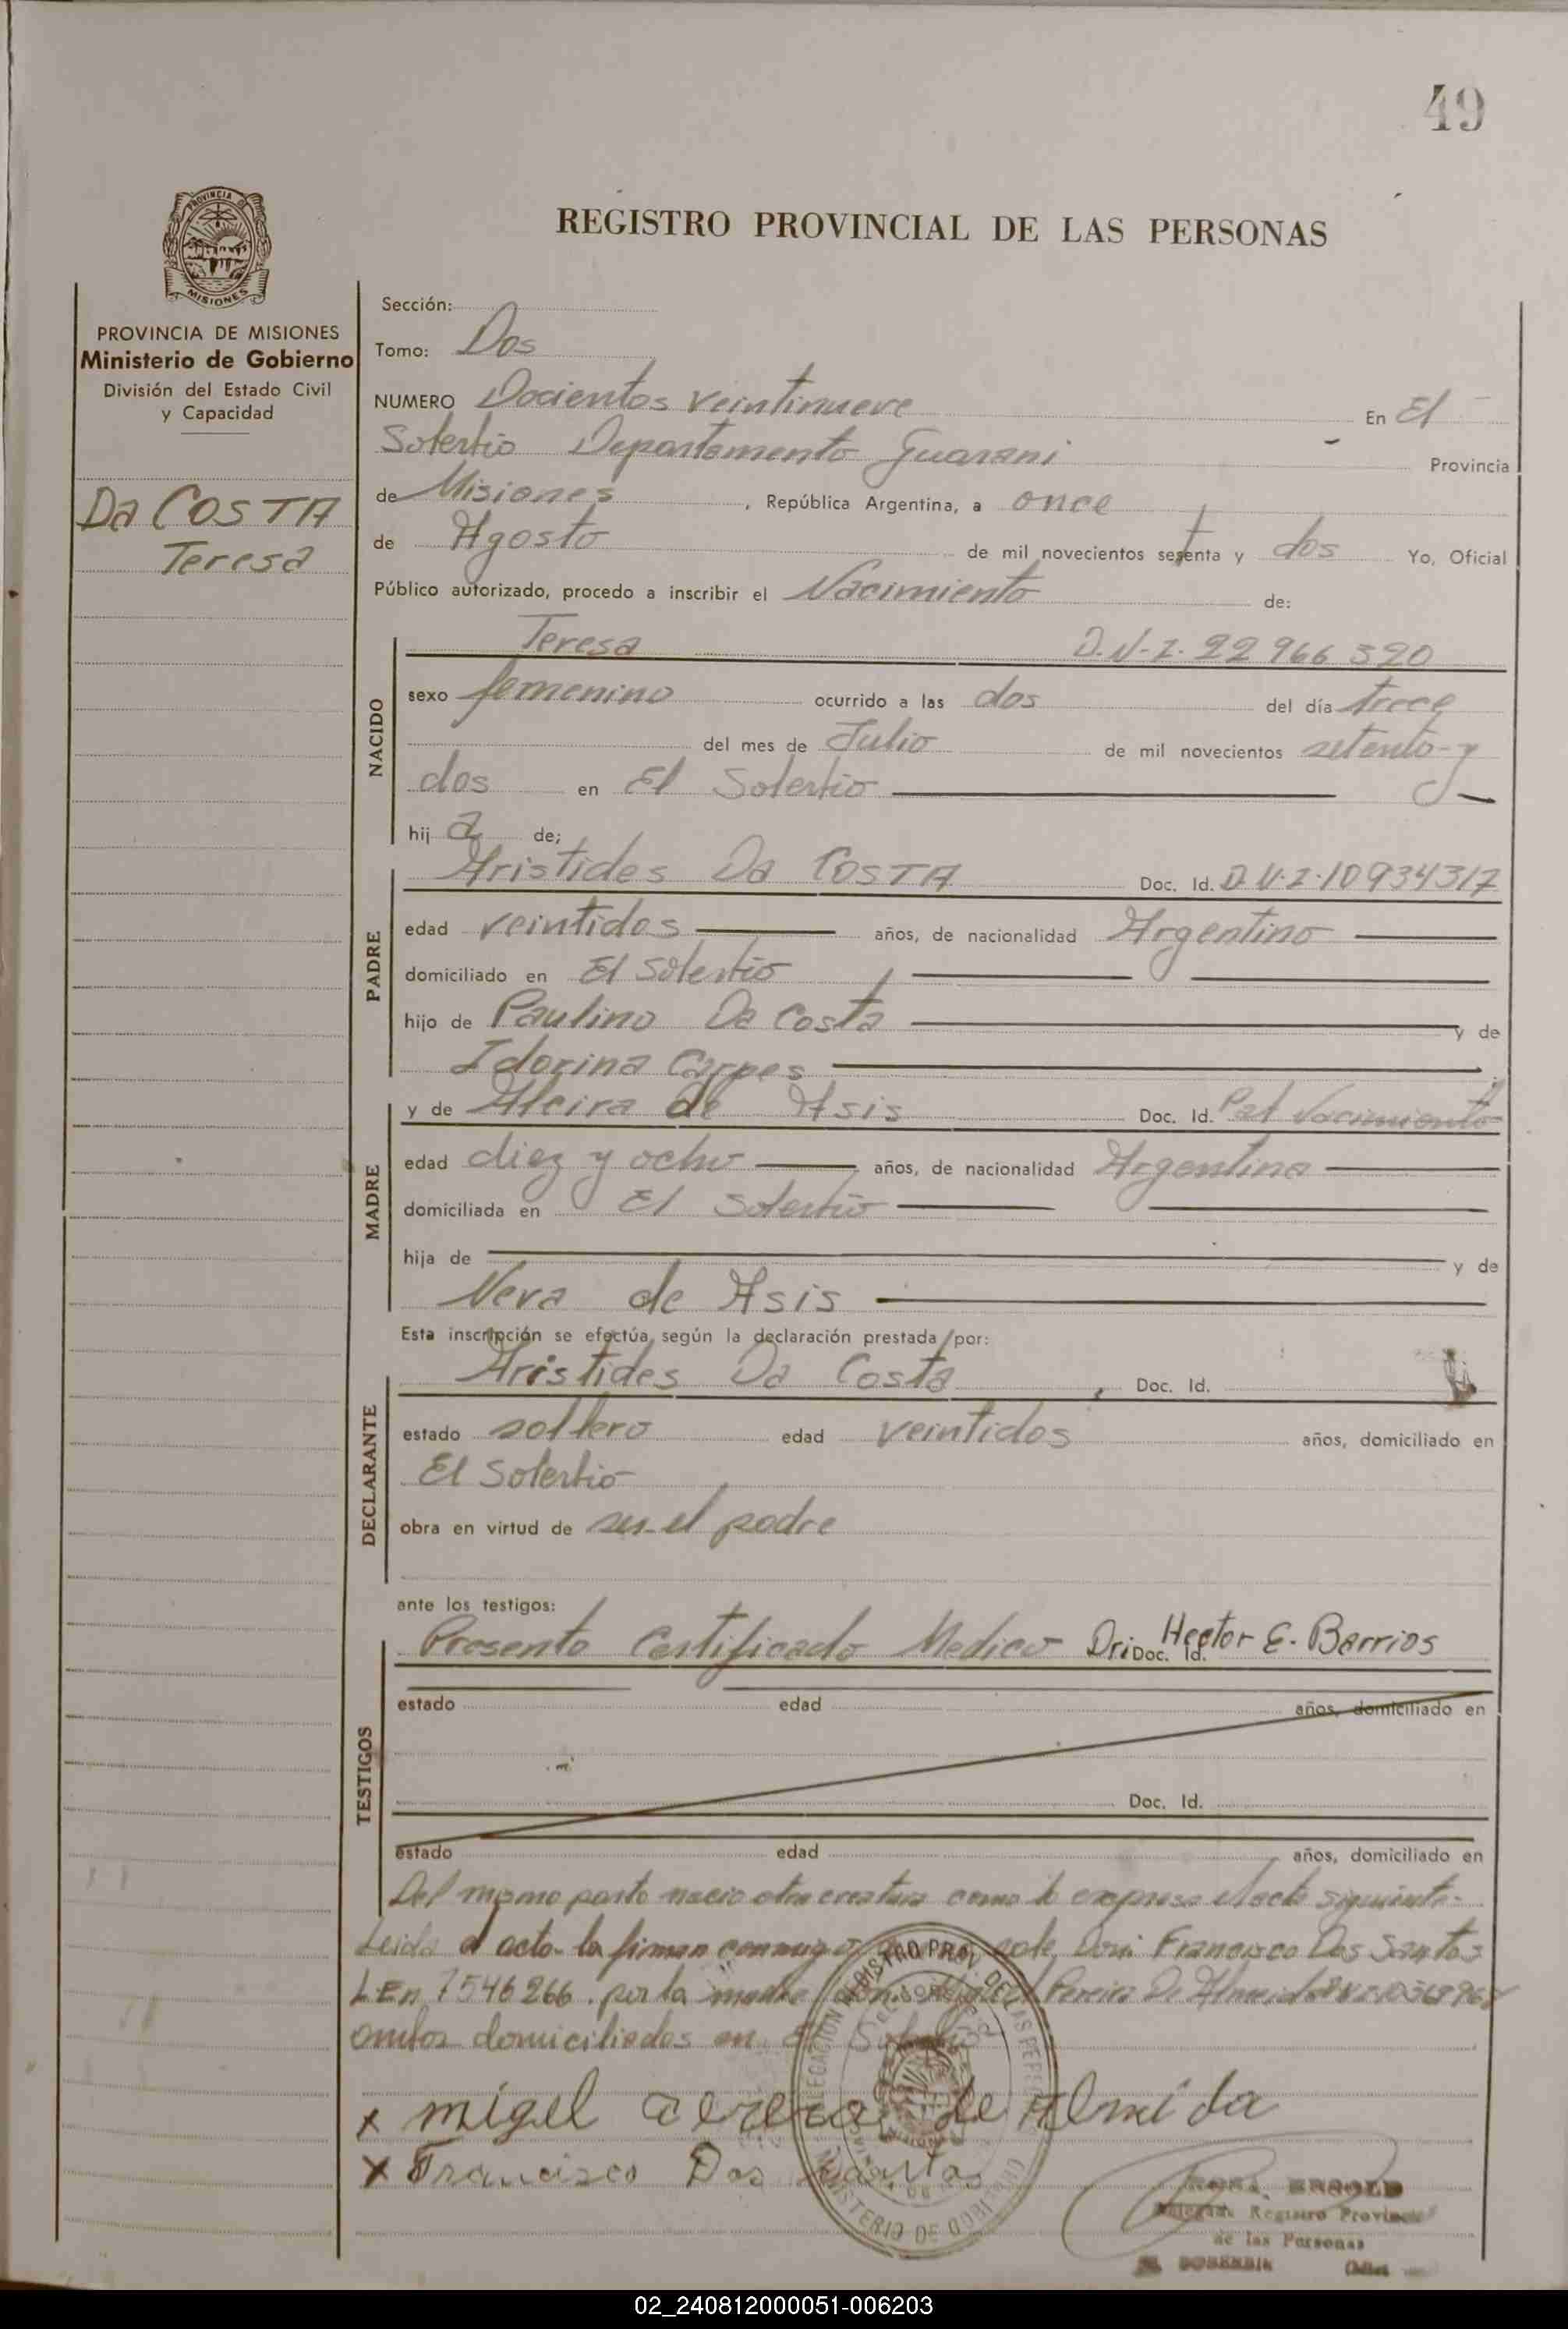 49
PROVINCIA DE
MISIONES
REGISTRO PROVINCIAL DE LAS PERSONAS
PROVINCIA DE MISIONES
Ministerio de Gobierno
División del Estado Civil
y Capacidad
Da COSTA
Teresa
Sección:
Tomo: Dos
NUMERO Docientos veintinueve En El
Soberbio Departamento Guarani Provincia
de Misiones, República Argentina, a once
de Agosto de mil novecientos setenta y dos Yo, Oficial
Público autorizado, procedo a inscribir el Nacimiento de:
NACIDO
Teresa D.N.I. 22 966 320
sexo femenino ocurrido a las dos del día trece
del mes de Julio de mil novecientos setenta y
dos en El Soberbio
hija de;
PADRE
Aristides Da COSTA Doc. Id. D.N.I. 10934317
edad veintidos años, de nacionalidad Argentino
domiciliado en El Soberbio
hijo de Paulino Da Costa y de
Idorina Carpes
MADRE
y de Alcira de Asis Doc. Id. Nacimiento
edad diez y ocho años, de nacionalidad Argentina
domiciliada en El Soberbio
hija de y de
Neva de Asis
Esta inscripción se efectúa, según la declaración prestada por:
DECLARANTE
Aristides Da Costa, Doc. Id.
estado soltero edad veintidos años, domiciliado en
El Soberbio
obra en virtud de ser el padre
ante los testigos:
TESTIGOS
Presento Certificado Medico Dr: Doc. Id. Hector E. Barrios
estado edad años, domiciliado en
Doc. Id.
estado edad años, domiciliado en
Del mismo parto nacio otra creatura como lo expresa el acta siguiente-
Leida el acta la firman conmigo Don Francisco Dos Santos
L.En 7546266. por la madre Pereira De
ambos domiciliados en El
x migel de Almida
x Francisco Dos Santos
REGISTRO PROV. DE LAS PERSONAS
MINISTERIO DE GOBIERNO
Registro Provincial
de las Personas
02_240812000051-006203